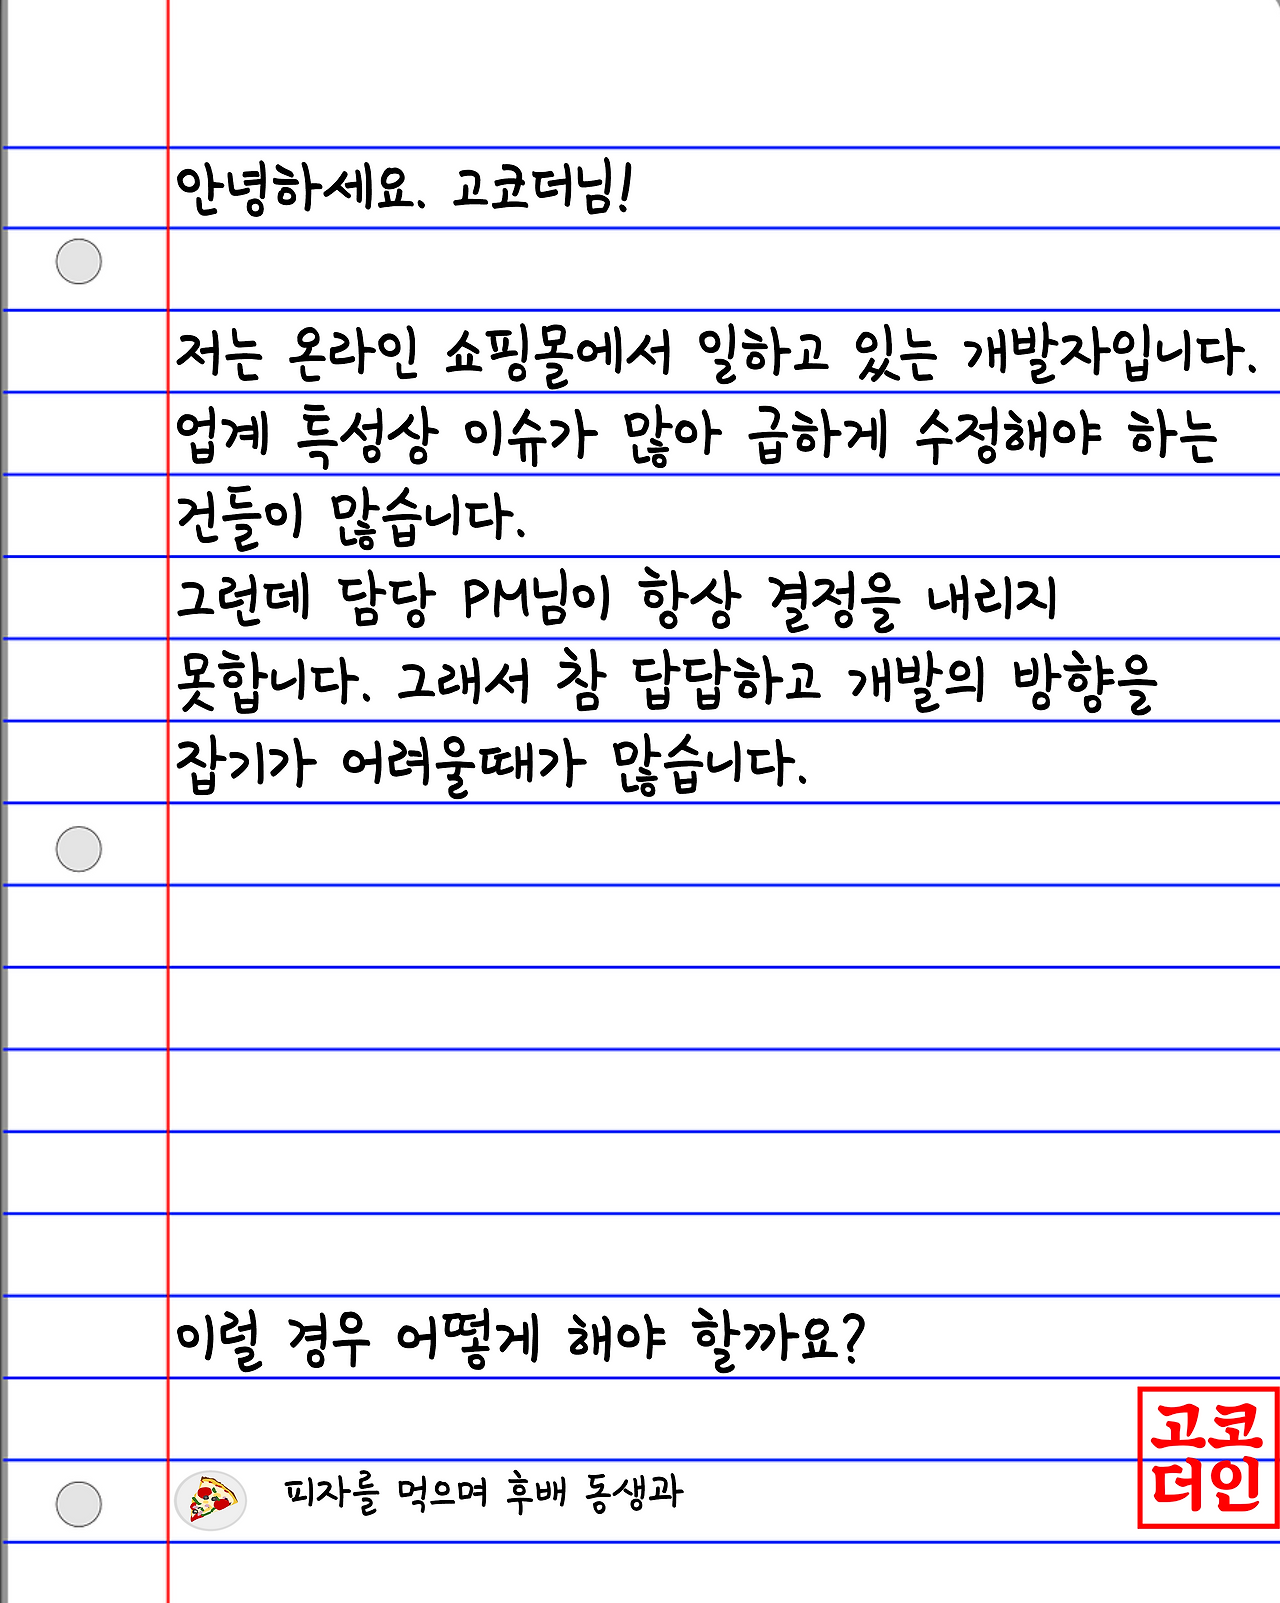 안녕하세요. 고코더님!
저는 온라인 쇼핑몰에서 일하고 있는 개발자입니다.
업계 특성상 이슈가 많아 급하게 수정해야 하는
건들이 많습니다.
그런데 담당 PM님이 항상 결정을 내리지
못합니다. 그래서 참 답답하고 개발의 방향을
잡기가 어려울때가 많습니다.
이럴 경우 어떻게 해야 할까요?
피자를 먹으며 후배 동생과
고코
더인